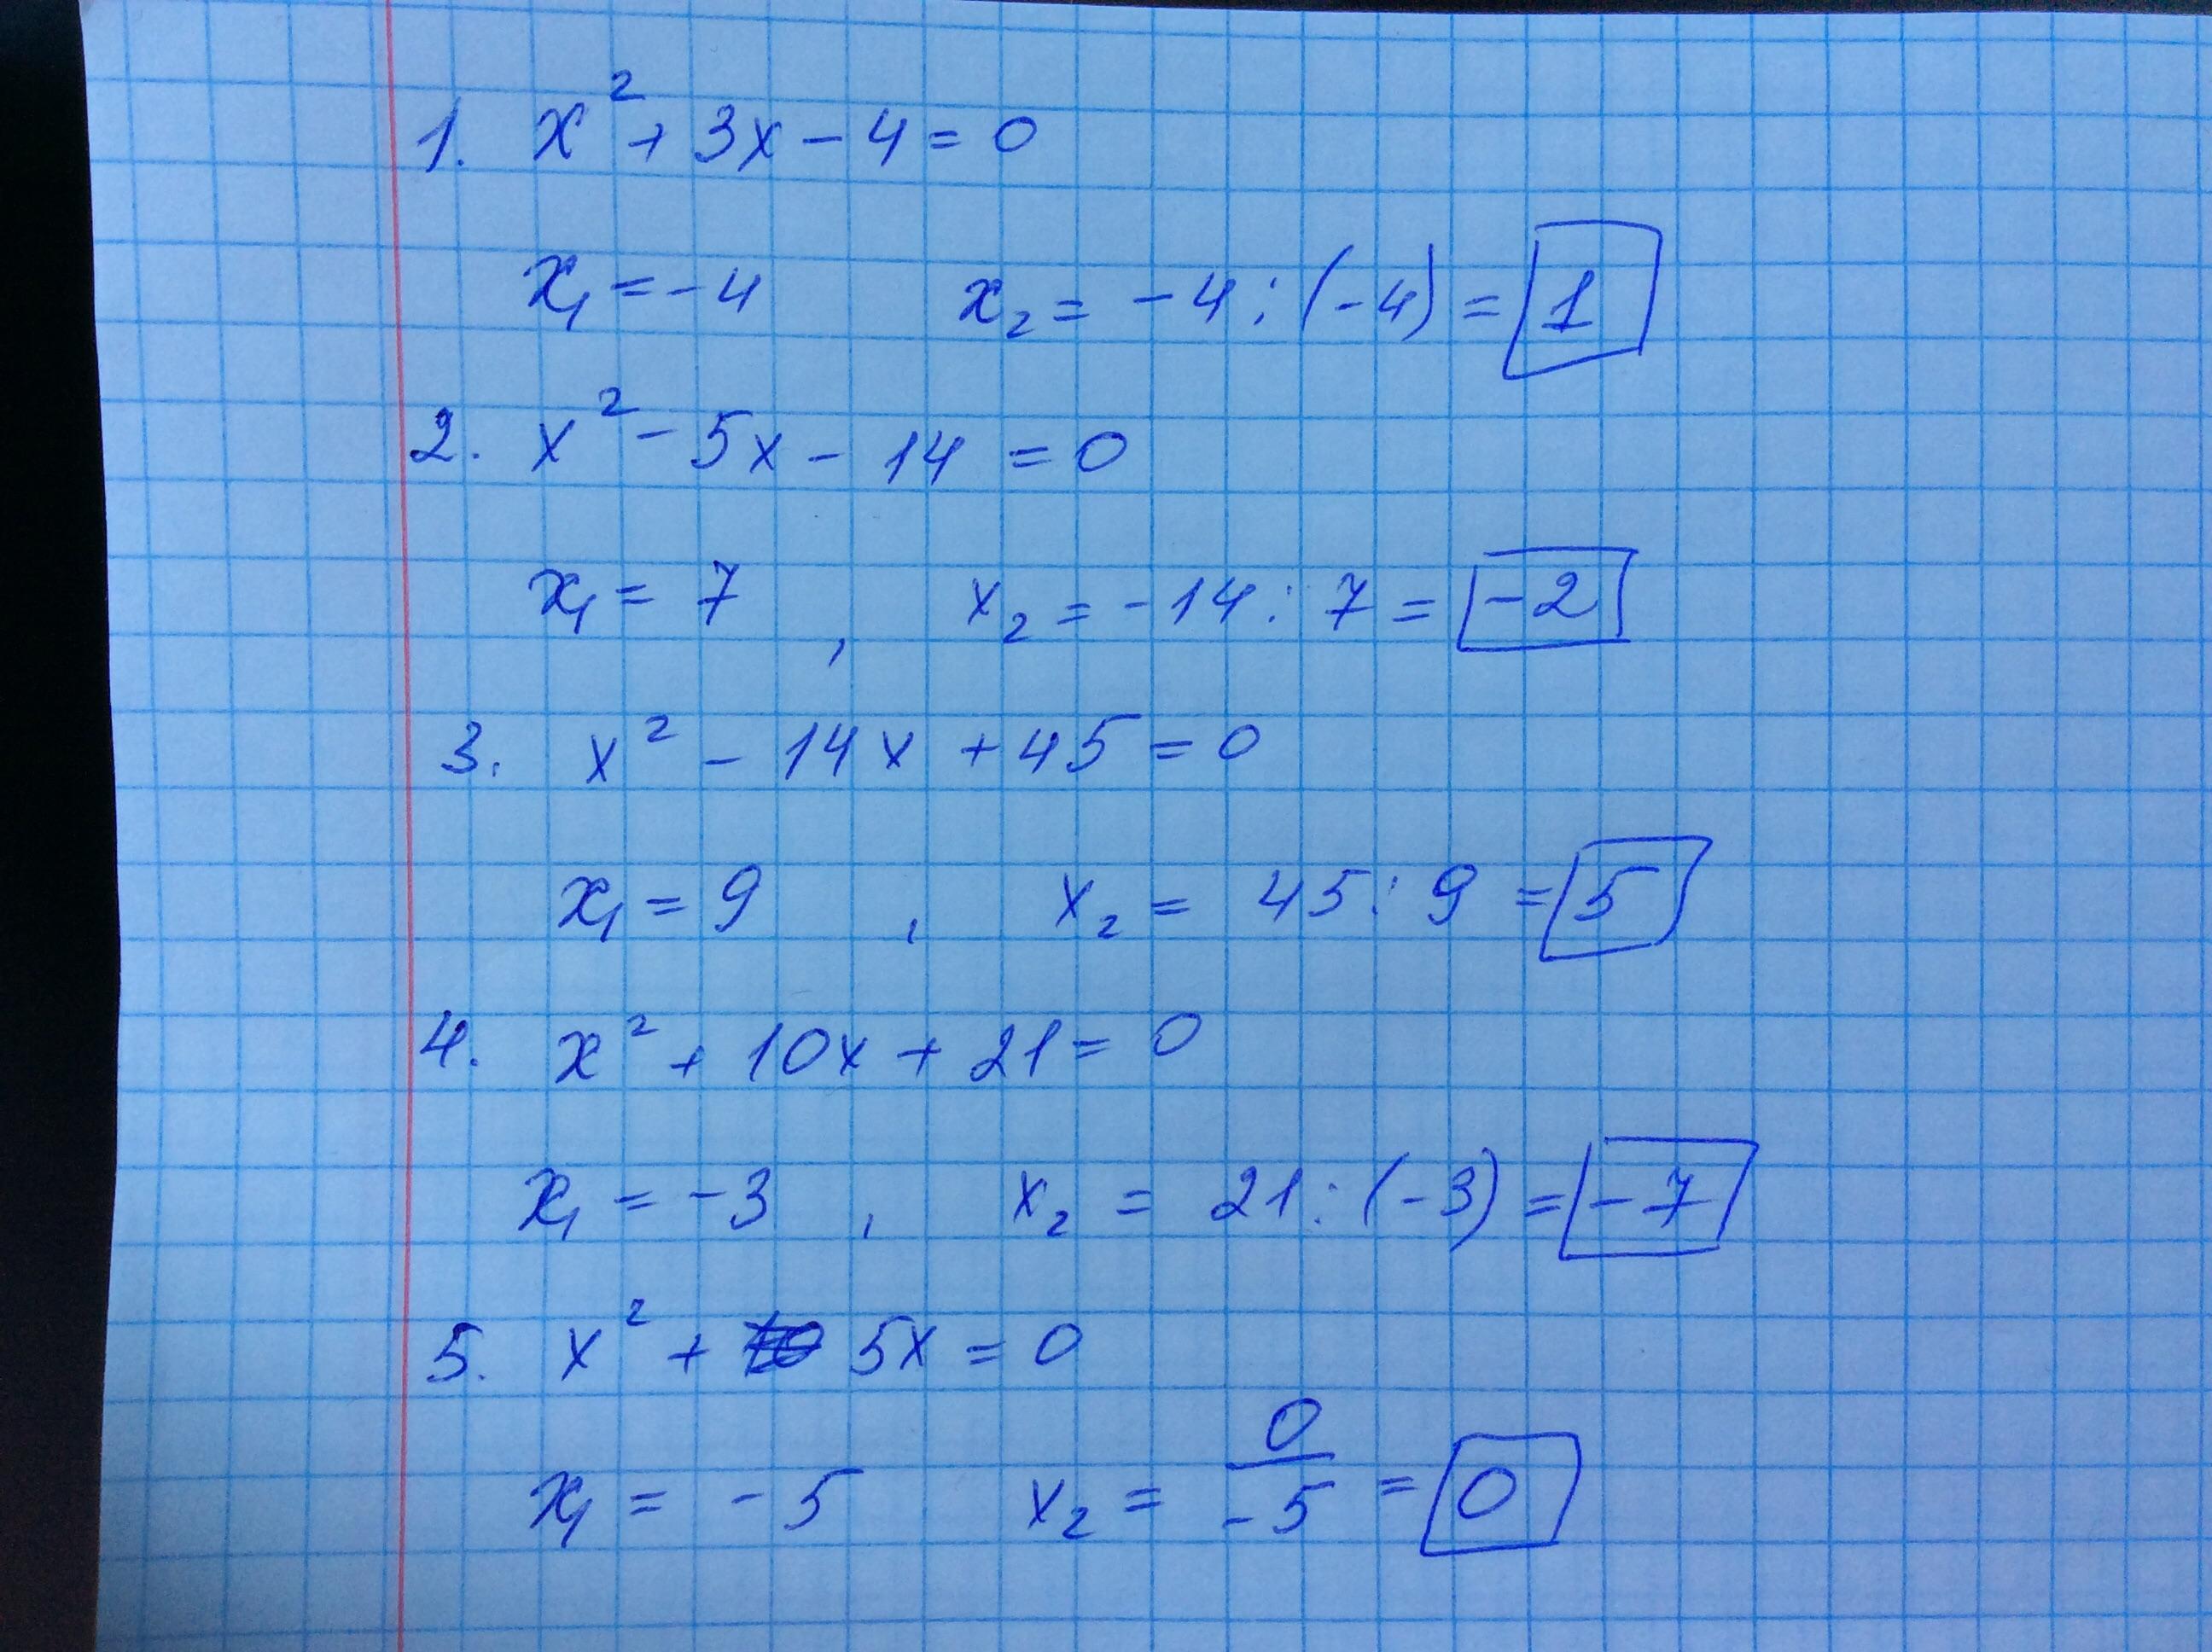 1. x² + 3x - 4 = 0
x₁ = -4 x₂ = -4 : (-4) = 1
2. x² - 5x - 14 = 0
x₁ = 7 , x₂ = -14 : 7 = -2
3. x² - 14x + 45 = 0
x₁ = 9 , x₂ = 45 : 9 = 5
4. x² + 10x + 21 = 0
x₁ = -3 , x₂ = 21 : (-3) = -7
5. x² + 5x = 0
x₁ = -5 x₂ = 0/-5 = 0